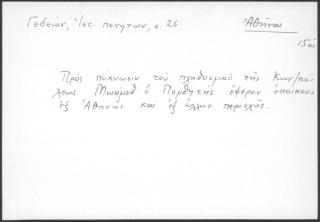 Γεδεών, Ἱστ. πενήτων, σ. 26
Ἀθῆναι
15ος
Πρὸς πύκνωσιν τοῦ πληθυσμοῦ τῆς Κων/πό-
λεως Μωάμεθ ὁ Πορθητὴς ἔφερεν ἐποίκους
ἐξ Ἀθηνῶν καὶ ἐξ ἄλλων περιοχῶν.